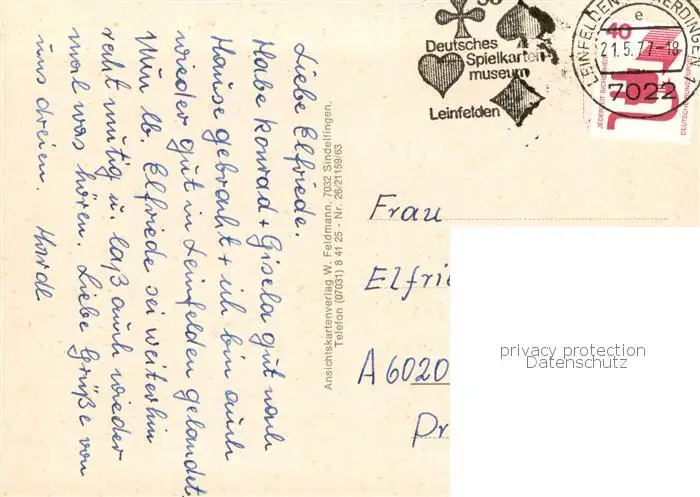 Liebe Elfriede.
Habe Konrad + Gisela gut nach
Hause gebracht + ich bin auch
wieder gut in Leinfelden gelandet.
Nun lb. Elfriede sei weiterhin
recht mutig u. laß auch wieder
mal was hören. Liebe Grüße von
uns dreien.
Ansichtskartenverlag W. Feldmann, 7032 Sindelfingen,
Telefon (07031) 8 41 25 - Nr. 26/21159/63
Deutsches
Spielkarten-
museum
Leinfelden
21.5.77-18
7022
40
JEDERZEIT SICHERHEIT
Frau
Elfrie
A6020
privacy protection
Datenschutz
Pr